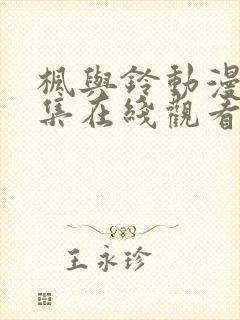 楓與鈴動漫
集在綫觀看
王永珍